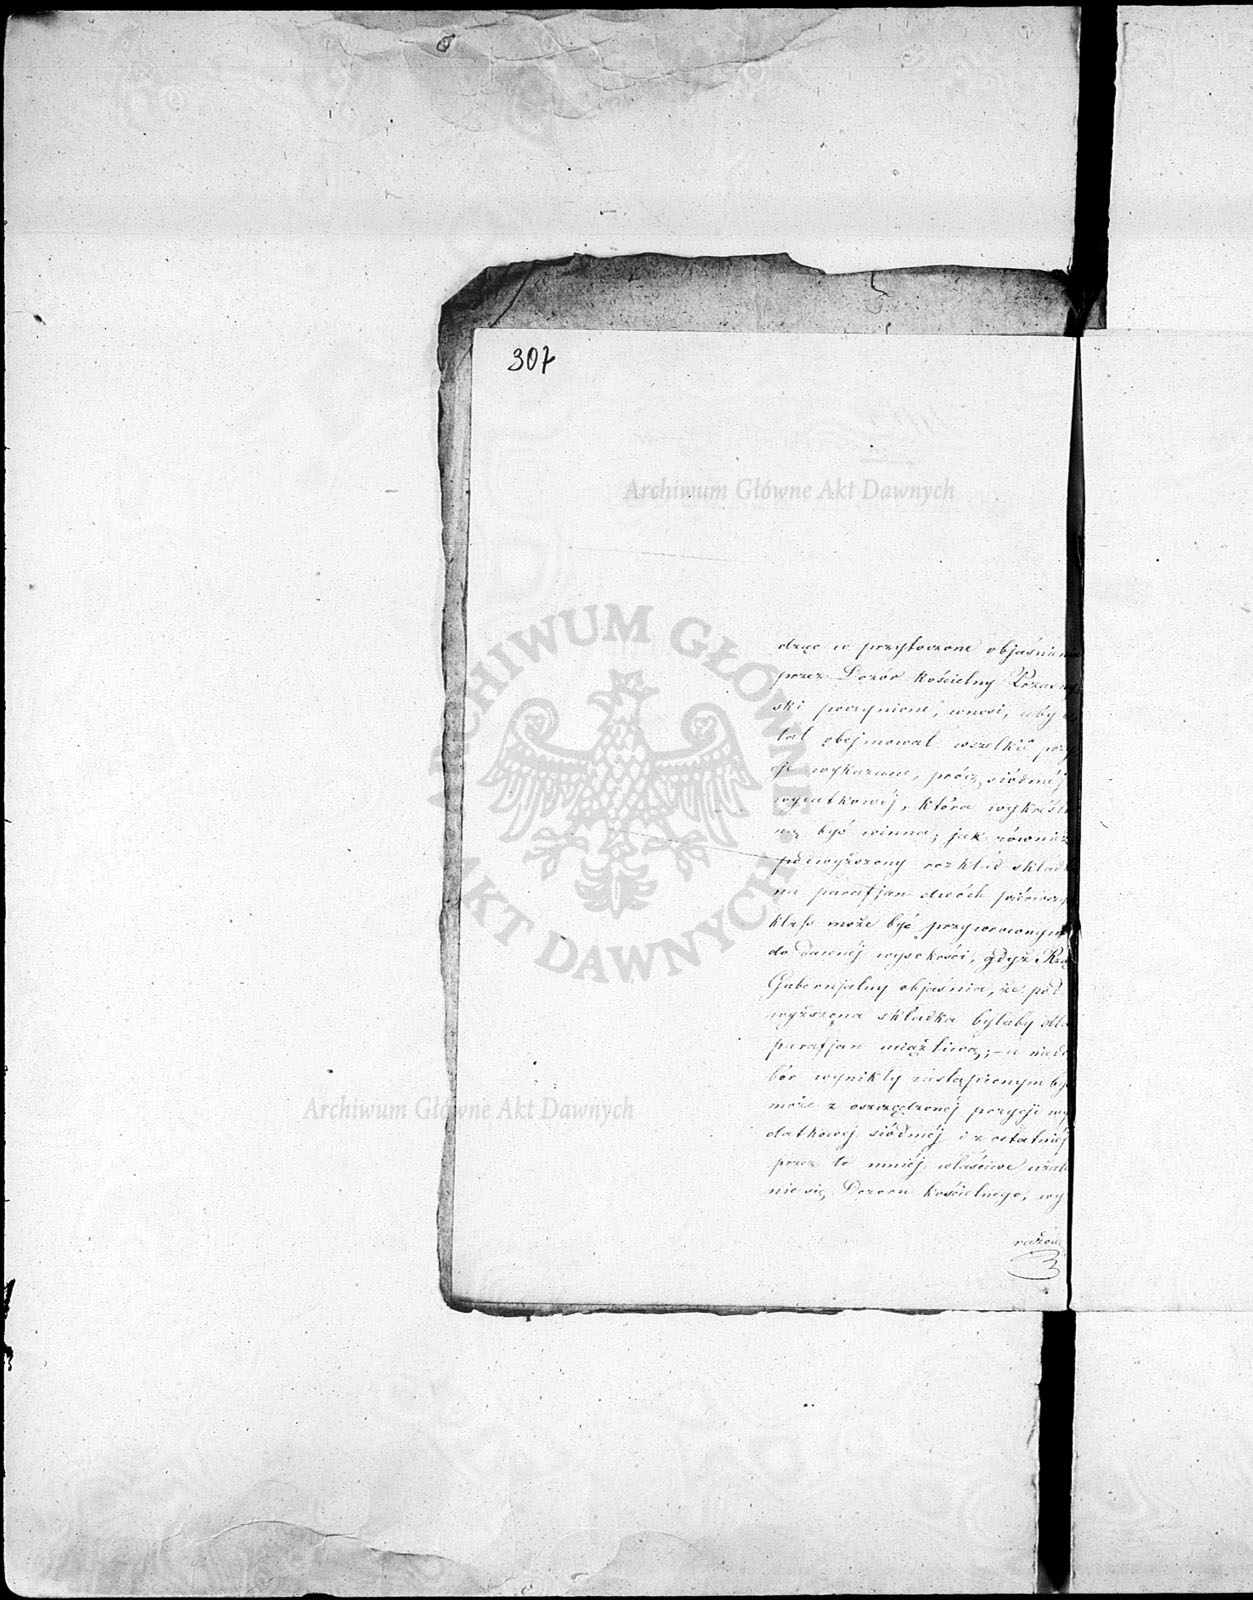 307
Archiwum Główne Akt Dawnych
ARCHIWUM GŁÓWNE AKT DAWNYCH
dząc w przytoczone objaśnienia
przez Dozór kościelny Przasny
ski poczynione, wnosi, aby
tat obejmował wszelkie pozy
cje wykazane, prócz siódméj
wydatkowéj, która wykréślo
ną być winna; jak również
podwyższony rozkład składk
na parafjan dwóch pierwszy
klass może być przywróconym
do dawnéj wysokości, gdyż Rząd
Gubernjalny objaśnia, że pod
wyższona składka byłaby dla
parafjan uciążliwą; a niedo
bór wynikły zastąpionym by
może z oszczędzonéj pozycji wy
datkowéj siódméj i z ostatniéj
Archiwum Główne Akt Dawnych
przez to mniéj właściwe użale
nie się Dozoru kościelnego, wy
rażone